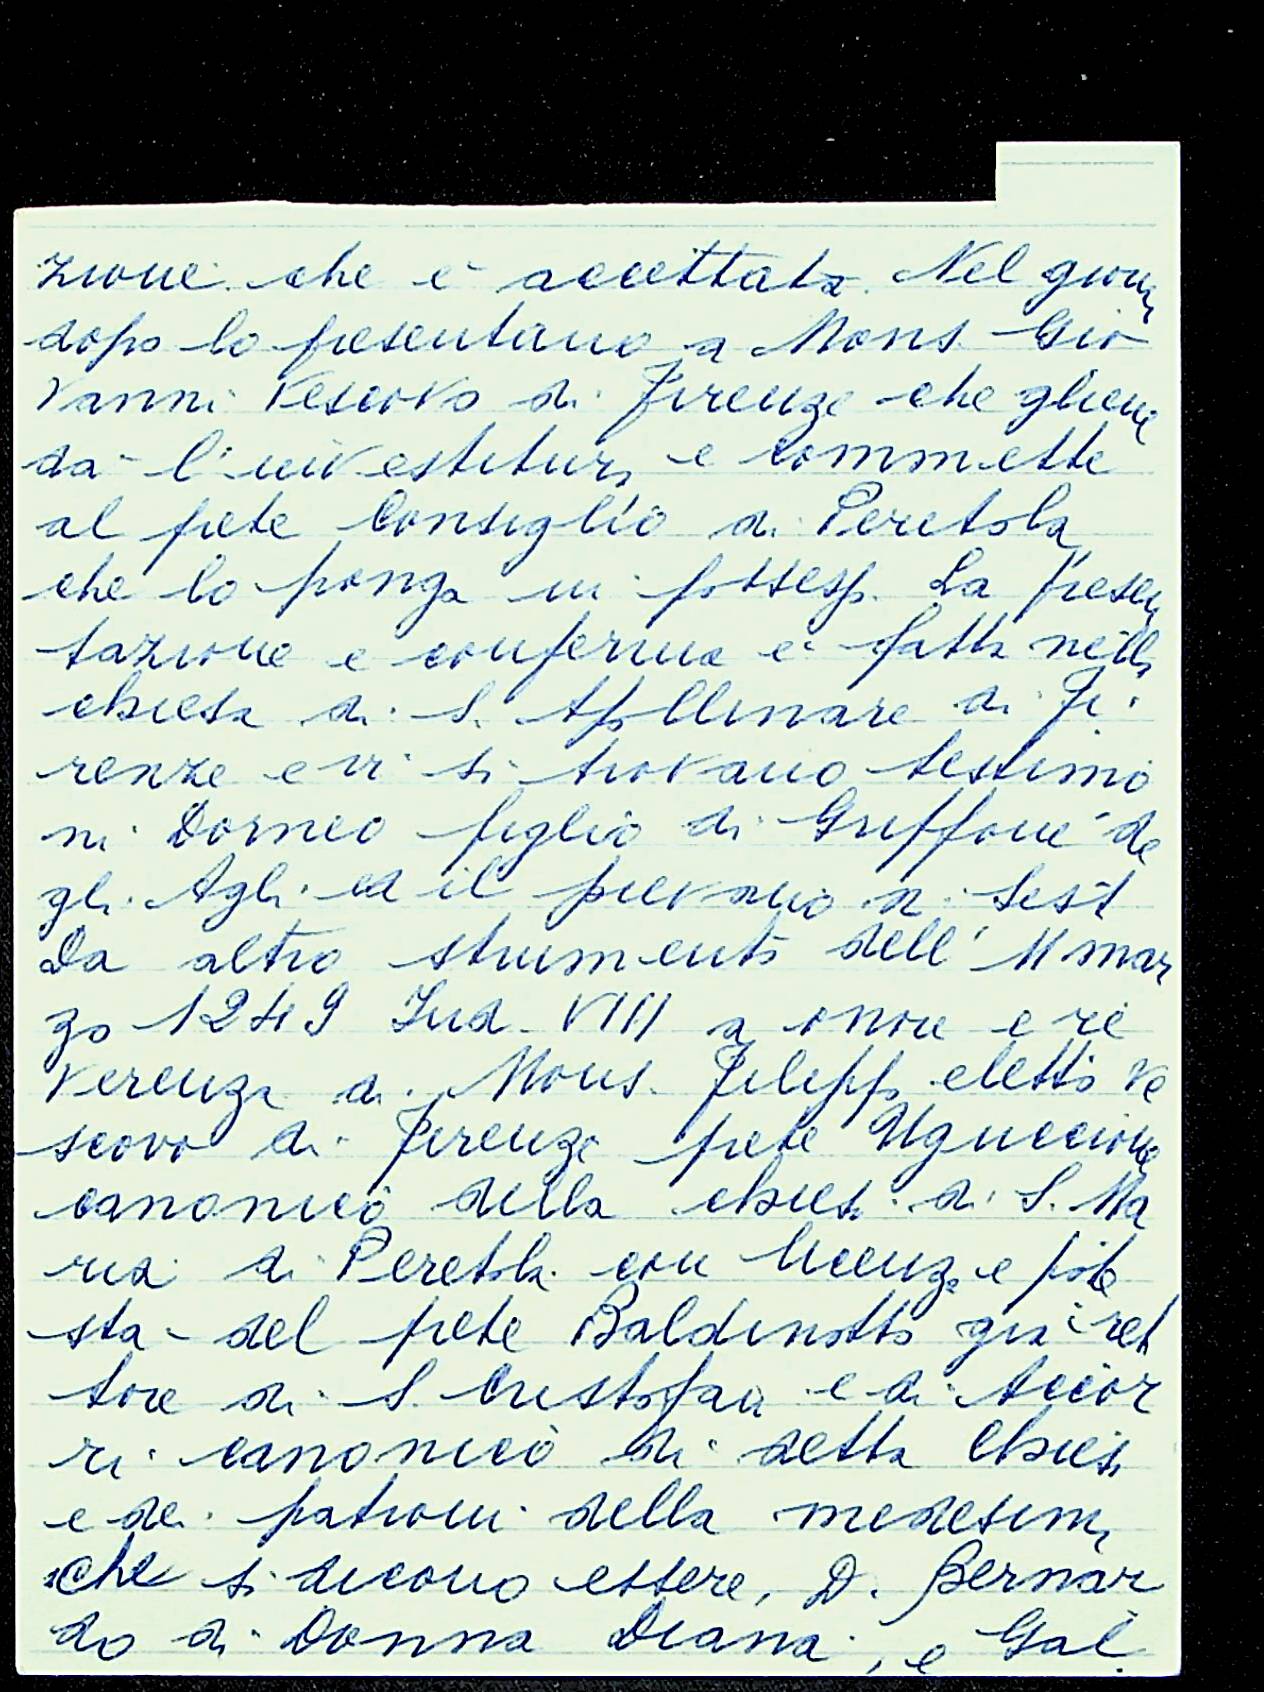 zione che è accettata. Nel giorno
dopo lo presentano a Mons. Gio
vanni Vescovo di Firenze che gliene
dà l'investitura e commette
al prete Consiglio di Peretola
che lo ponga in possesso. La presen
tazione e conferma è fatta nella
chiesa di S. Apollinare di Fi
renze e vi si trovano testimo
ni Dorneo figlio di Griffone de
gli Agli ed il pievano di Sesto
Da altro strumento dell' 11 mar
zo 1249 Ind. VIII a onore e re
verenza di Mons. Filippo eletto ve
scovo di Firenze prete Uguccione
canonico della chiesa di S. Ma
ria di Peretola con licenza e pote
stà del prete Baldinotto già ret
tore di S. Cristofano e di Accor
ri canonico di detta Chiesa
e dei patroni della medesima
che si dicono essere, D. Bernar
do di Donna Diana, e Gal